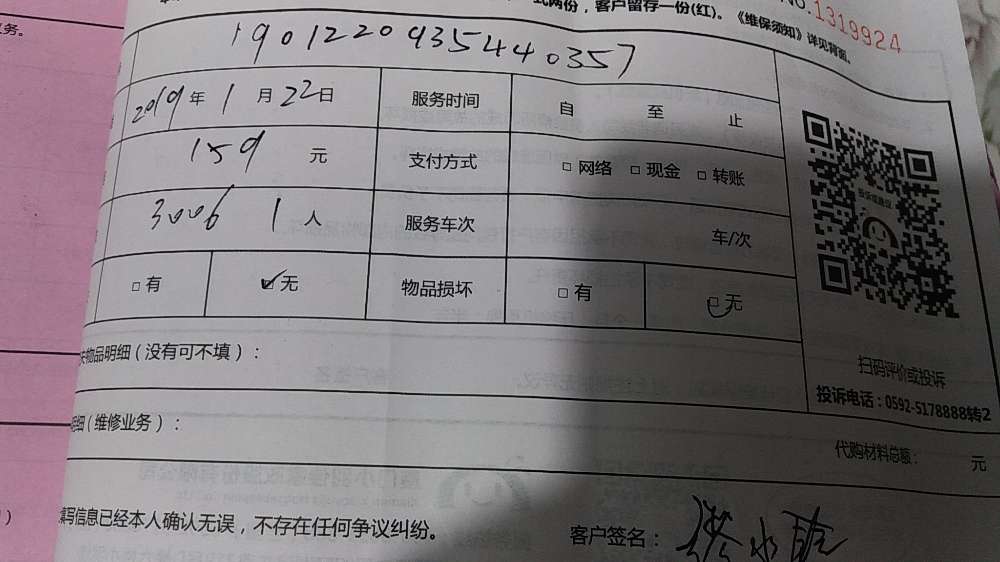 式两份，客户留存一份(红)。《维保须知》详见背面。
NO.1319924
务。
1901220935440357
2019年1月22日 服务时间 自 至 止
159 元 支付方式 □ 网络 □ 现金 □ 转账
3006 1 人 服务车次 车/次
□ 有 ☑ 无 物品损坏 □ 有 ☑ 无
投诉或建议
物品明细（没有可不填）：
扫码评价或投诉
投诉电话：0592-5178888转2
明细（维修业务）：
代购材料总额： 元
填写信息已经本人确认无误，不存在任何争议纠纷。
客户签名：